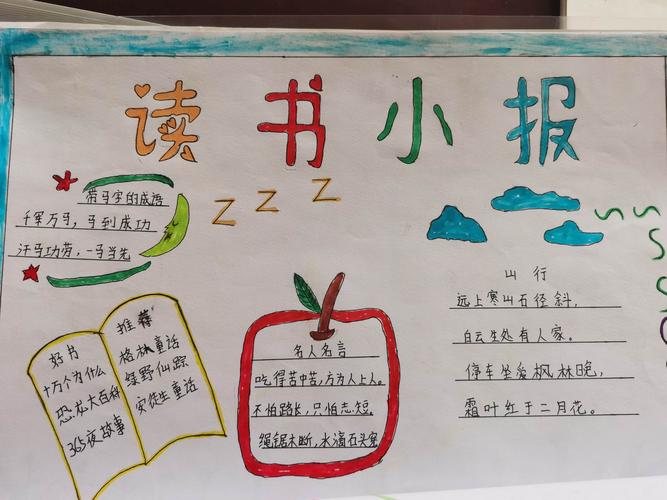 读书小报
Z Z Z
带马字的成语
千军万马，马到成功
汗马功劳，一马当先
山行
远上寒山石径斜，
白云生处有人家。
停车坐爱枫林晚，
霜叶红于二月花。
好书
十万个为什么
恐龙大百科
365夜故事
推荐
格林童话
绿野仙踪
安徒生童话
名人名言
吃得苦中苦，方为人上人。
不怕路长，只怕志短。
绳锯木断，水滴石头穿